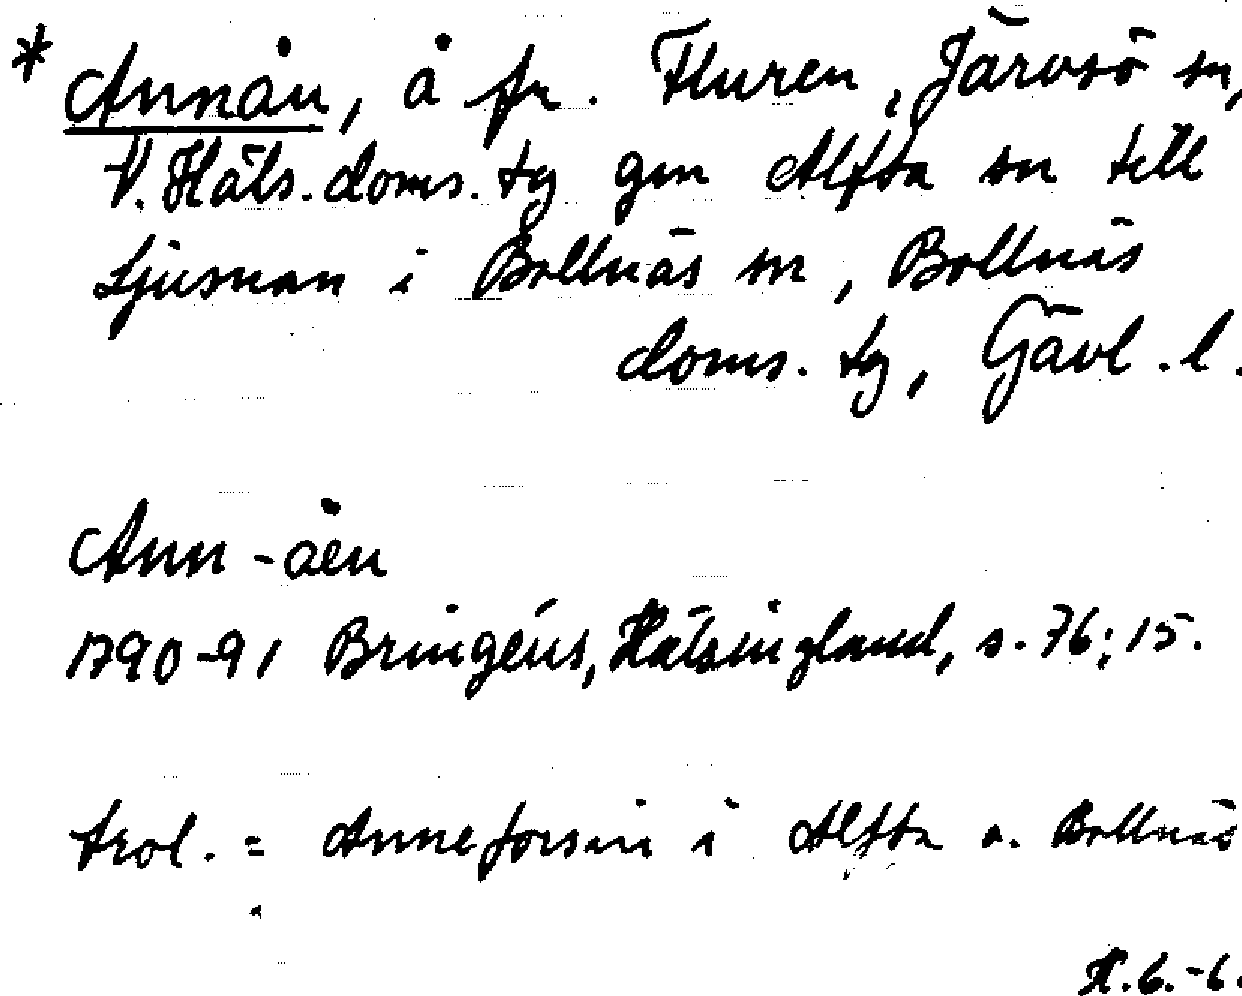 * Annån, å fr. Fluren, Järvsö sn,
V. Häls. doms. tg gm Alfta sn till
Ljusnan i Bollnäs sn, Bollnäs
doms. tg, Gävl. l.
Ann-åen
1790-91 Bringéus, Hälsingland, s. 76; 15.
trol. = Anneforsån i Alfta o. Bollnäs